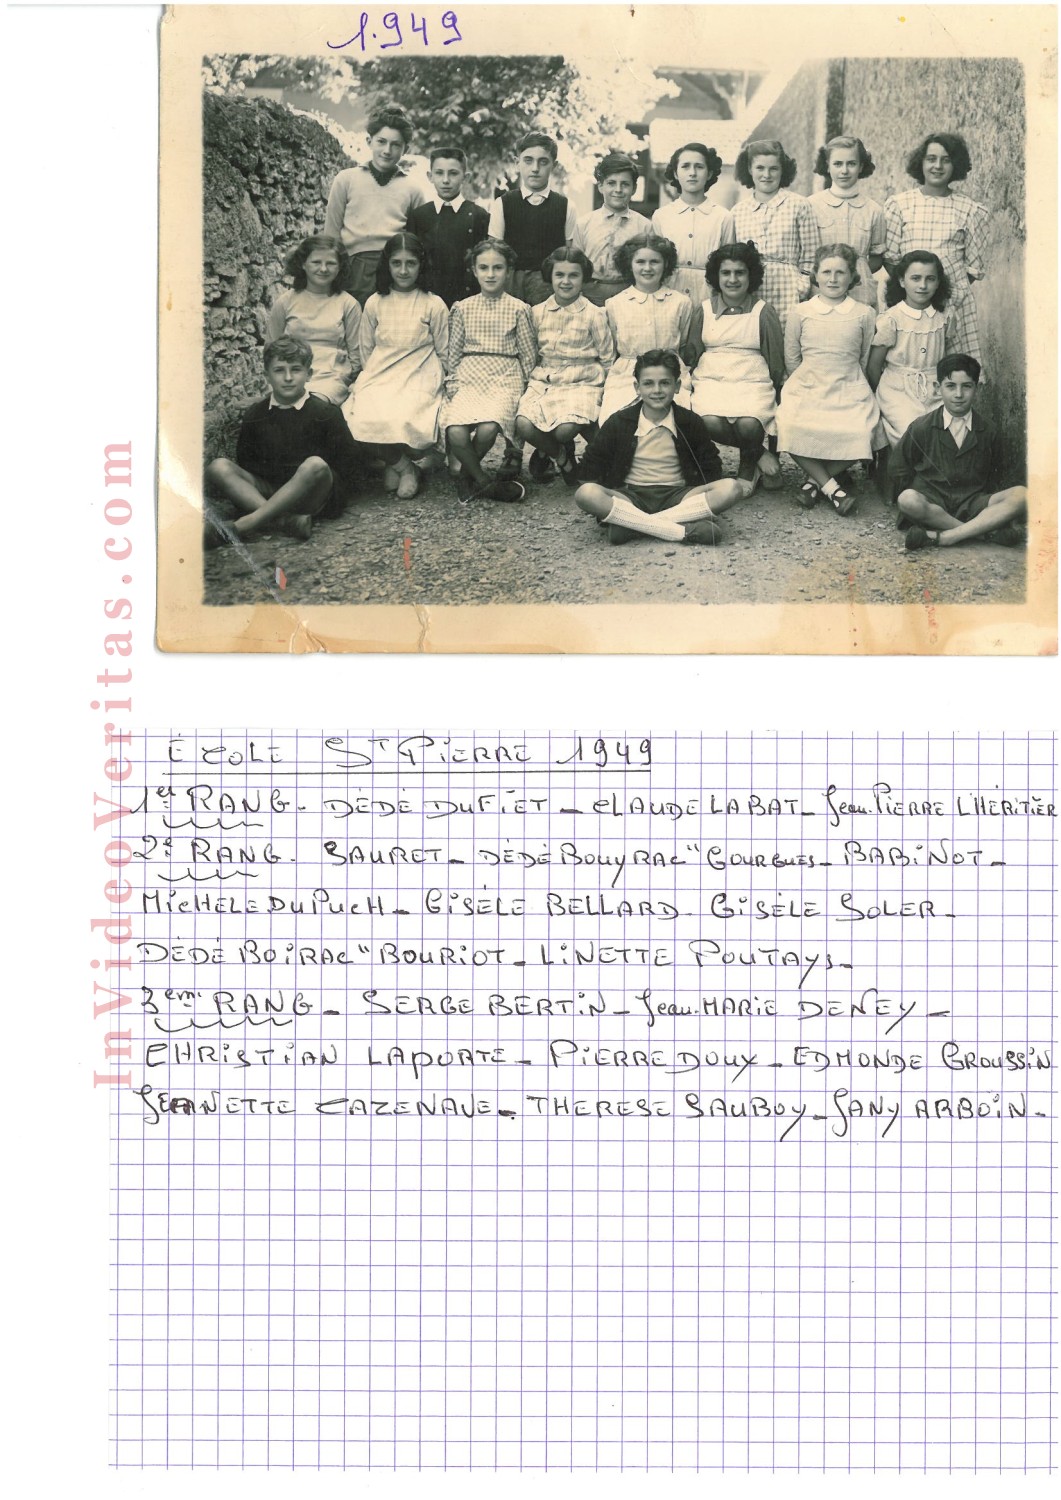 1.949
ÉCOLE ST PIERRE 1949
1er RANG - DÉDÉ DUFIET - CLAUDE LABAT - Jean-PIERRE L'HÉRITIER
2e RANG - SAURET - DÉDÉ BOUYRAC " GOURGUES - BABINOT -
MICHÈLE DUPUCH - GISÈLE BELLARD - GISÈLE SOLER -
DÉDÉ BOIRAC " BOURIOT - LINETTE POUTAYS -
3em RANG - SERGE BERTIN - Jean-MARIE DENEY -
CHRISTIAN LAPORTE - PIERRE DOUX - EDMONDE GROUSSIN
JEANETTE CAZENAVE - THERESE SAUBOY - JANY ARBOIN -
InVideoVeritas.com